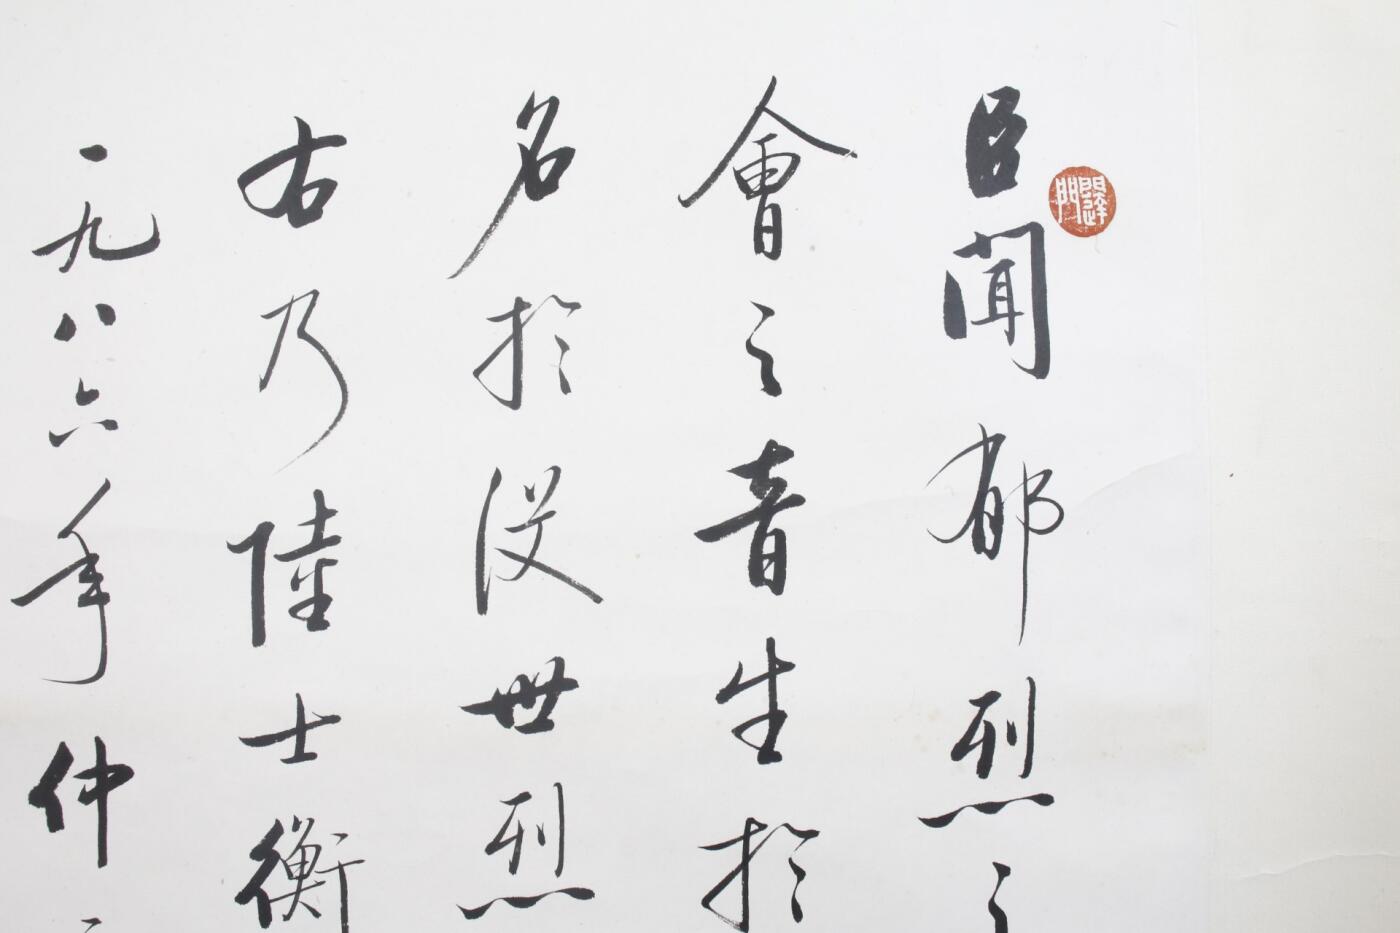 臣聞郁烈之
會之音生於
名於没世烈
右乃陸士衡
一九八六年仲